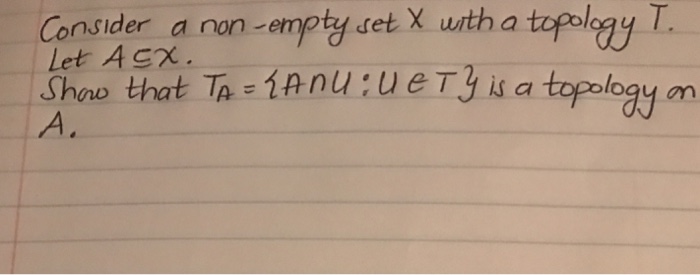 Consider a non-empty set X with a topology T.
Let A⊆X.
Show that T_A = {A∩U : U∈T} is a topology on
A.